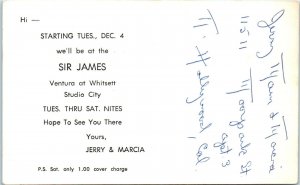 Hi —
STARTING TUES., DEC. 4
we'll be at the
SIR JAMES
Ventura at Whitsett
Studio City
TUES. THRU SAT. NITES
Hope To See You There
Yours,
JERRY & MARCIA
P.S. Sat. only 1.00 cover charge
Jerry Mann & Marcia
11511 Moorpark St
apt 3
N. Hollywood, Cal